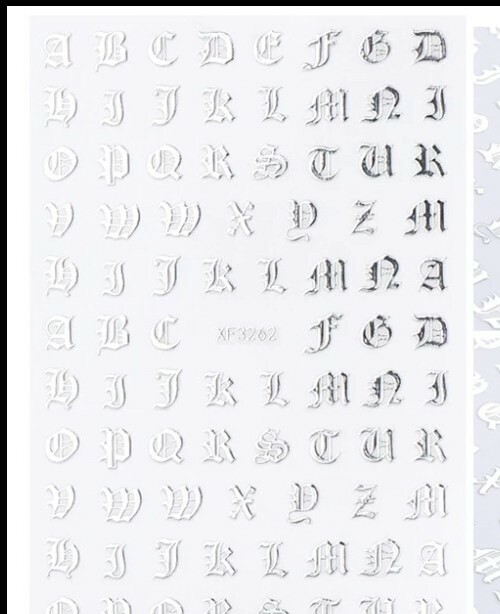 A B C D E F G D
H I J K L M N I
O P Q R S T U R
V W W X Y Z M
H I J K L M N A
A B C XF3262 F G D
H I J K L M N I
O P Q R S T U R
V W W X Y Z M
H I J K L M N A
O P Q R S T U R